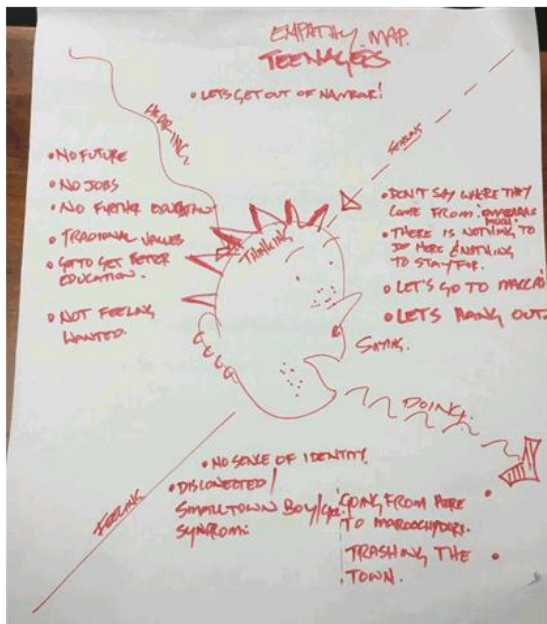 EMPATHY MAP.
TEENAGERS
• LETS GET OUT OF NAMBOUR!
HEARING
SEEING
• NO FUTURE
• NO JOBS
• NO FURTHER EDUCATION
• TRADIONAL VALUES
• GOT TO GET BETTER
EDUCATION.
• NOT FEELING
WANTED
THINKING
• DON'T SAY WHERE THEY
COME FROM.
• THERE IS NOTHING TO
DO HERE & NOTHING
TO STAY FOR.
• LET'S GO TO MACCAS
• LET'S HANG OUT
SAYING.
DOING.
FEELING
• NO SENSE OF IDENTITY.
• DISCONECTED/
SMALLTOWN BOY/
SYNDROME
GOING FROM HERE •
TO MAROOCHYDORE.
TRASHING THE •
TOWN.